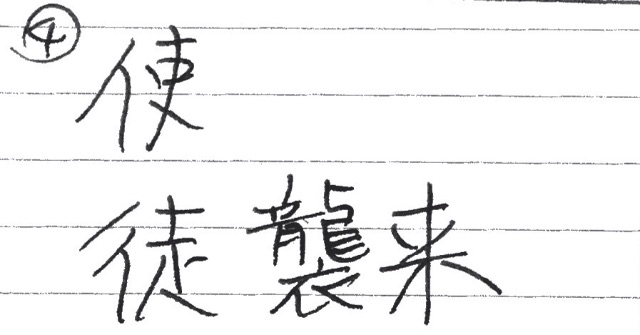 ④
使
徒襲来